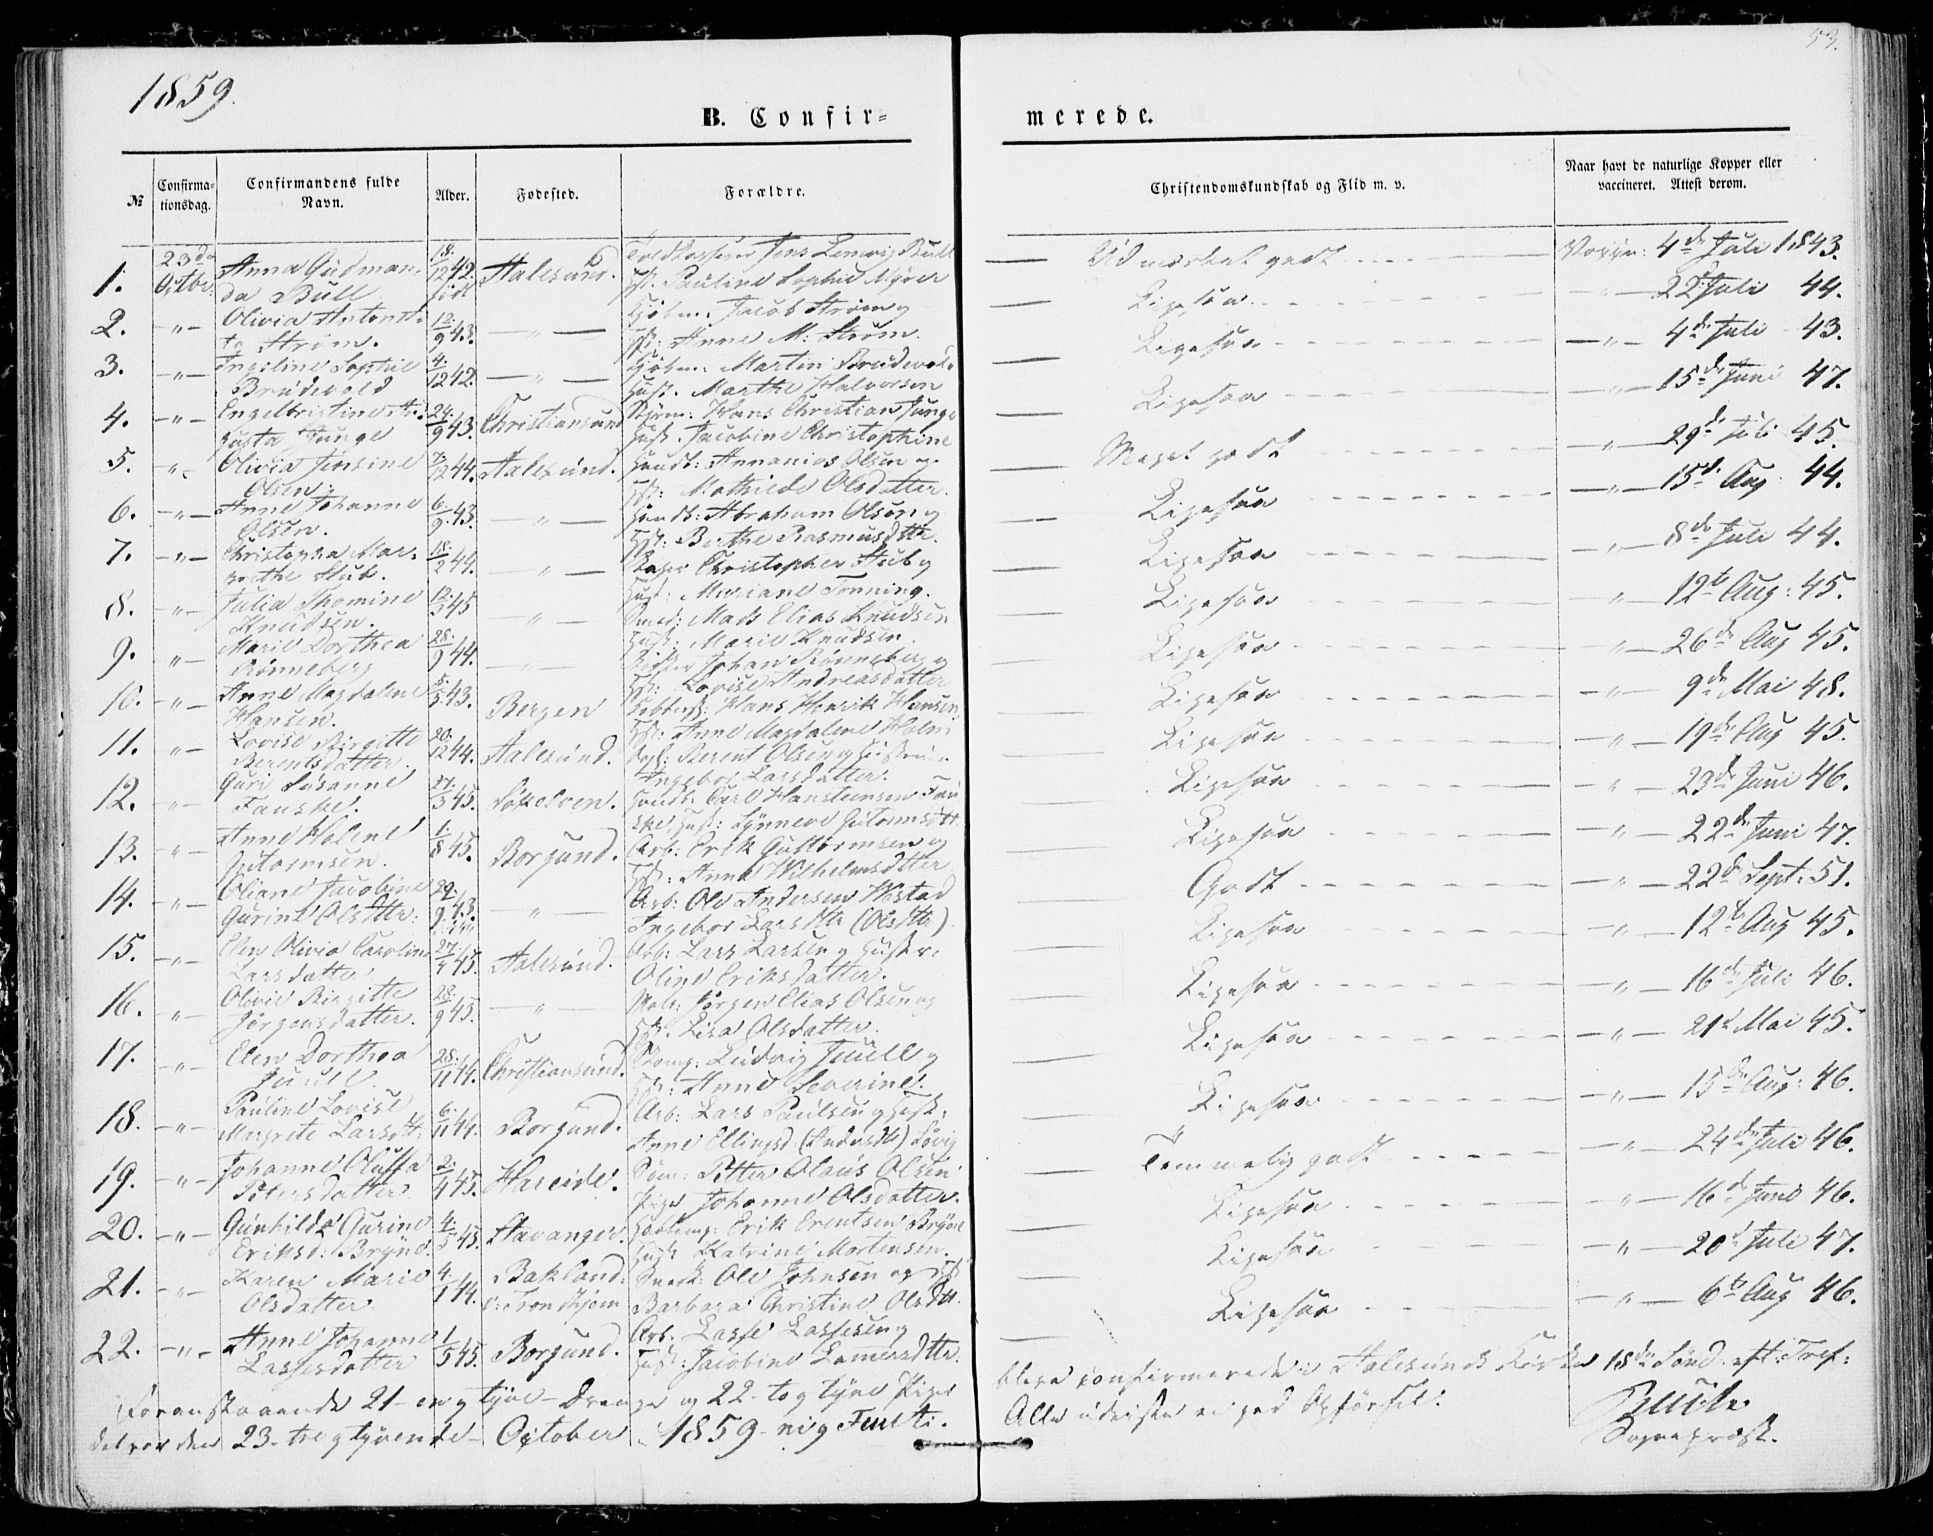 53.
1859.
B. Confir=
merede.
№
Confirma=
tionsdag.
Confirmandens fulde
Navn.
Alder.
Fødested.
Forældre.
Christendomskundskab og Flid m. v.
Naar havt de naturlige Kopper eller
vaccineret. Attest derom.
1. 23de Octbr: Anna Gudman-
da Bull 18/12 42. født Aalesund. Jens Lenwig Bull
Hst. Pauline Sophie
Udmærket godt 4de Juli 1843.
2. -"- Olivia
Strøm. 12/9 43. -"- Kjøbm. Jacob Strøm og
Hst: Anne M: Strøm.
Ligesaa -"- 22de Juli 44.
3. -"- Ingeline Sophie
Brudevold 4/12 42. -"- Kjøbm. Martin Brudevold
Hust. Marthe Halvorsen
Ligesaa -"- 4de Juli 43.
4. -"- Engelbristine Au-
gusta Junge 24/9 43. Christiansund Hans Christian Junge
Hust. Jacobine Christophine
Ligesaa -"- 15de Juni 47.
5. -"- Olivia Jensine
Olsen. /12 44. Aalesund. Handb: Annanias Olsen og
Hst: Mathilde Olsdatter.
Meget godt -"- 29de Juli 45.
6. -"- Anne Johanne
Olsen. 6/9 43. -"- Handb: Abraham Olsen og
Hst: Berthe Rasmusdtr.
Ligesaa -"- 15de Aug: 44.
7. -"- Christopha Mar-
grethe Stub. 18/2 44. -"- Christopher Stub og
Hust: Mariane Tonning.
Ligesaa -"- 8de Juli 44.
8. -"- Julia Thomine
Knudsen. 12/3 45 -"- Smed: Mads Elias Knudsen
Hust: Marie Knudsen.
Ligesaa -"- 12te Aug: 45.
9. -"- Marie Dorthea
Rønneberg 28/9 44. -"- Johan Rønneberg og
Hst: Lovise Andreasdatter
Ligesaa -"- 26de Aug 45.
10. -"- Anne Magdalene
Hansen. 43. Bergen Hans Henrik Hansen
Hst: Anne Magdalene Holm
Ligesaa -"- 9de Mai 48.
11. -"- Lovise Birgitte
Berentsdatter. 20/12 44. Aalesund. Berent Olsen og Hustru
Ingebor Larsdatter.
Ligesaa -"- 19de Aug 45.
12. -"- Guri Susanne
Fauske. 27/3 45. Søkelven. Handb: Carl Hansteensen Fau
ske, Hust: Synneve Gutormsdtr.
Ligesaa -"- 23de Juni 46.
13. -"- Anne Holene
Gutormsen. 1/8 45. Borgund. Arb: Erik Guttormsen og
Hst: Anne Wilhelmsdtter
Ligesaa -"- 22de Juni 47.
14. -"- Oliane Jacobine
Gurine Olsdtter: 29/9 43. -"- Arb: Ole Andersen Westad
Ingebor Larsdtr (Olsdtr)
Godt -"- 22de Sept: 51.
15. -"- Elen Olivia Caroline
Larsdatter 27/ 45. Aalesund. Arb: Lars Larsen og Hustr.
Oline Eriksdatter.
Ligesaa -"- 12te Aug 45.
16. -"- Olivie Birgitte
Jørgensdatter. 28/9 45. -"- Jørgen Elias Olsen og
Hst: Lisa Olsdatter.
Ligesaa -"- 16de Juli 46.
17. -"- Elen Dorthea
Juull. 28/11 44. Christiansund. Ludvig Juull og
Hst: Anne Severine.
Ligesaa -"- 21de Mai 45.
18. -"- Pauline Lovise
Margrete Larsdtr: 6/11 44. Borgund. Arb: Lars Paulsen og Hust:
Anne Ellingsd (Andersdtr)
Ligesaa 15de Aug: 46.
19. -"- Johanne Oluffa
Petersdatter 2/4 45. Hareide. Petter Olaus Olsen
Pige Johanne Olsdatter.
Temmelig godt -"- 24de Juli 46.
20. -"- Gunhilda Gurine
Eriksd: Bryne. 4/5 45. Stavanger. Erik Erentsen Bryne
Hust Katrine Mortensen.
Ligesaa -"- 16de Juni 46.
21. -"- Karen Marie
Olsdatter 4/1 44. Bakland
v: Trondhjem Ole Johnsen og Hst
Barbara Christine Olsdtr.
Ligesaa -"- 20de Juli 47.
22. -"- Anne Johanne
Lassesdatter 1/5 45. Borgund. Arb. Lasse Lassesen og
Hust: Jacobine Lamersdtr.
Ligesaa -"- 6te Aug 46.
Foranstaaende 21 - en og tyve - Drenge og 22 - to og tyve Piger
bleve confirmerede i Aalesunds Kirke 18de Sønd. eft: Tref-
det var den 23 - tre og tyvende October 1859 - ni og Femti.
Alle udviste en god Opførsel.
Buck.
Sognepræst.